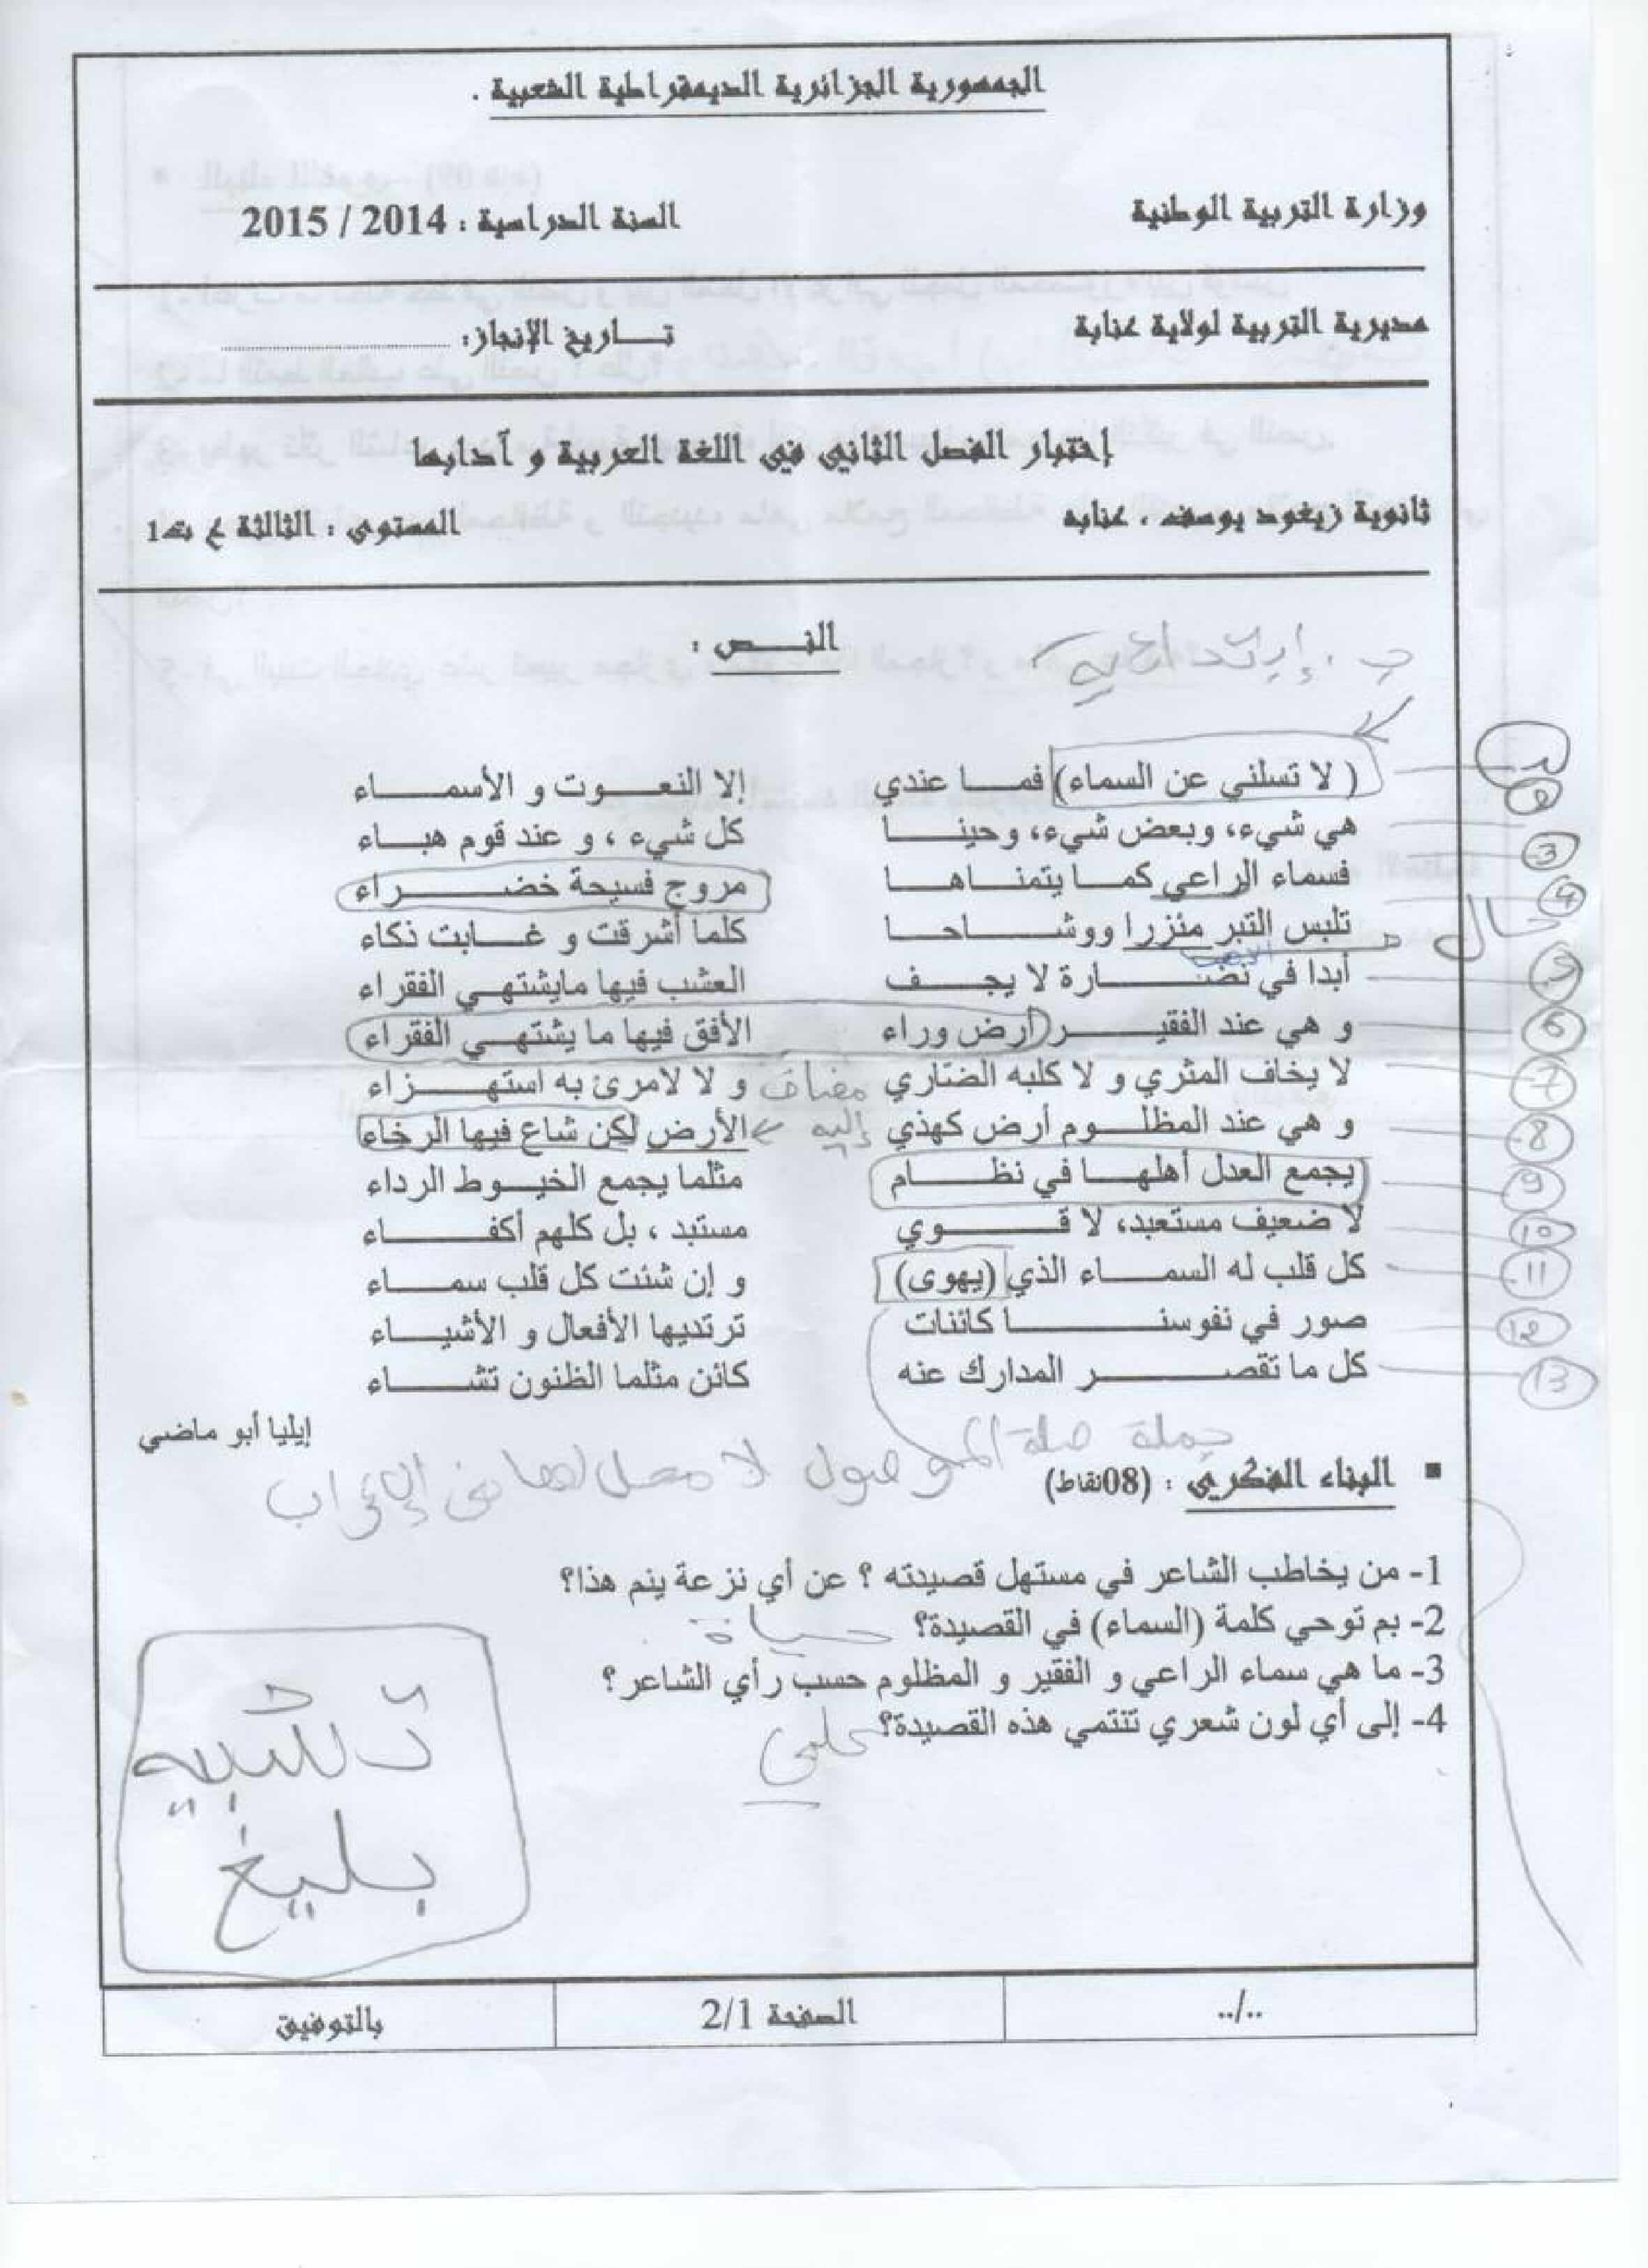 الجمهورية الجزائرية الديمقراطية الشعبية .
وزارة التربية الوطنية السنة الدراسية : 2014 / 2015
مديرية التربية لولاية عنابة تــاريخ الإنجاز: ........................
إختبار الفصل الثاني في اللغة العربية و آدابها
ثانوية زيغود يوسف . عنابه المستوى : الثالثة ع ت1
النــص :
ج . إبتدائية
( لا تسلني عن السماء) فمــا عندي إلا النعــوت و الأسمــاء
هي شيء، وبعض شيء، وحينــا كل شيء ، و عند قوم هبــاء
3
فسماء الراعي كمــا يتمنــاهــا مروج فسيحة خضــراء
4
تلبس التبر مئزرا ووشــاحــا كلما أشرقت و غــابت ذكاء
حال
أبدا في نضــارة لا يجــف العشب فيها مايشتهــي الفقراء
5
و هي عند الفقيــر أرض وراء الأفق فيها ما يشتهــي الفقراء
6
لا يخاف المثري و لا كلبه الضاري و لا لامرئ به استهــزاء
7
مضاف إليه
و هي عند المظلــوم أرض كهذي الأرض لكن شاع فيها الرخاء
8
يجمع العدل أهلهــا في نظــام مثلما يجمع الخيــوط الرداء
9
لا ضعيف مستعبد، لا قــوي مستبد ، بل كلهم أكفــاء
10
كل قلب له السمــاء الذي (يهوى) و إن شئت كل قلب سمــاء
11
صور في نفوسنــا كائنات ترتديها الأفعال و الأشيــاء
12
كل ما تقصــر المدارك عنه كائن مثلما الظنون تشــاء
13
إيليا أبو ماضي
جملة صلة الموصول لا محل لها من الإعراب
▪ البناء الفكري : (08نقاط)
1- من يخاطب الشاعر في مستهل قصيدته ؟ عن أي نزعة ينم هذا؟
2- بم توحي كلمة (السماء) في القصيدة؟ حياة
3- ما هي سماء الراعي و الفقير و المظلوم حسب رأي الشاعر؟
4- إلى أي لون شعري تنتمي هذه القصيدة؟
تشبيه
بليغ
../.. الصفحة 2/1 بالتوفيق